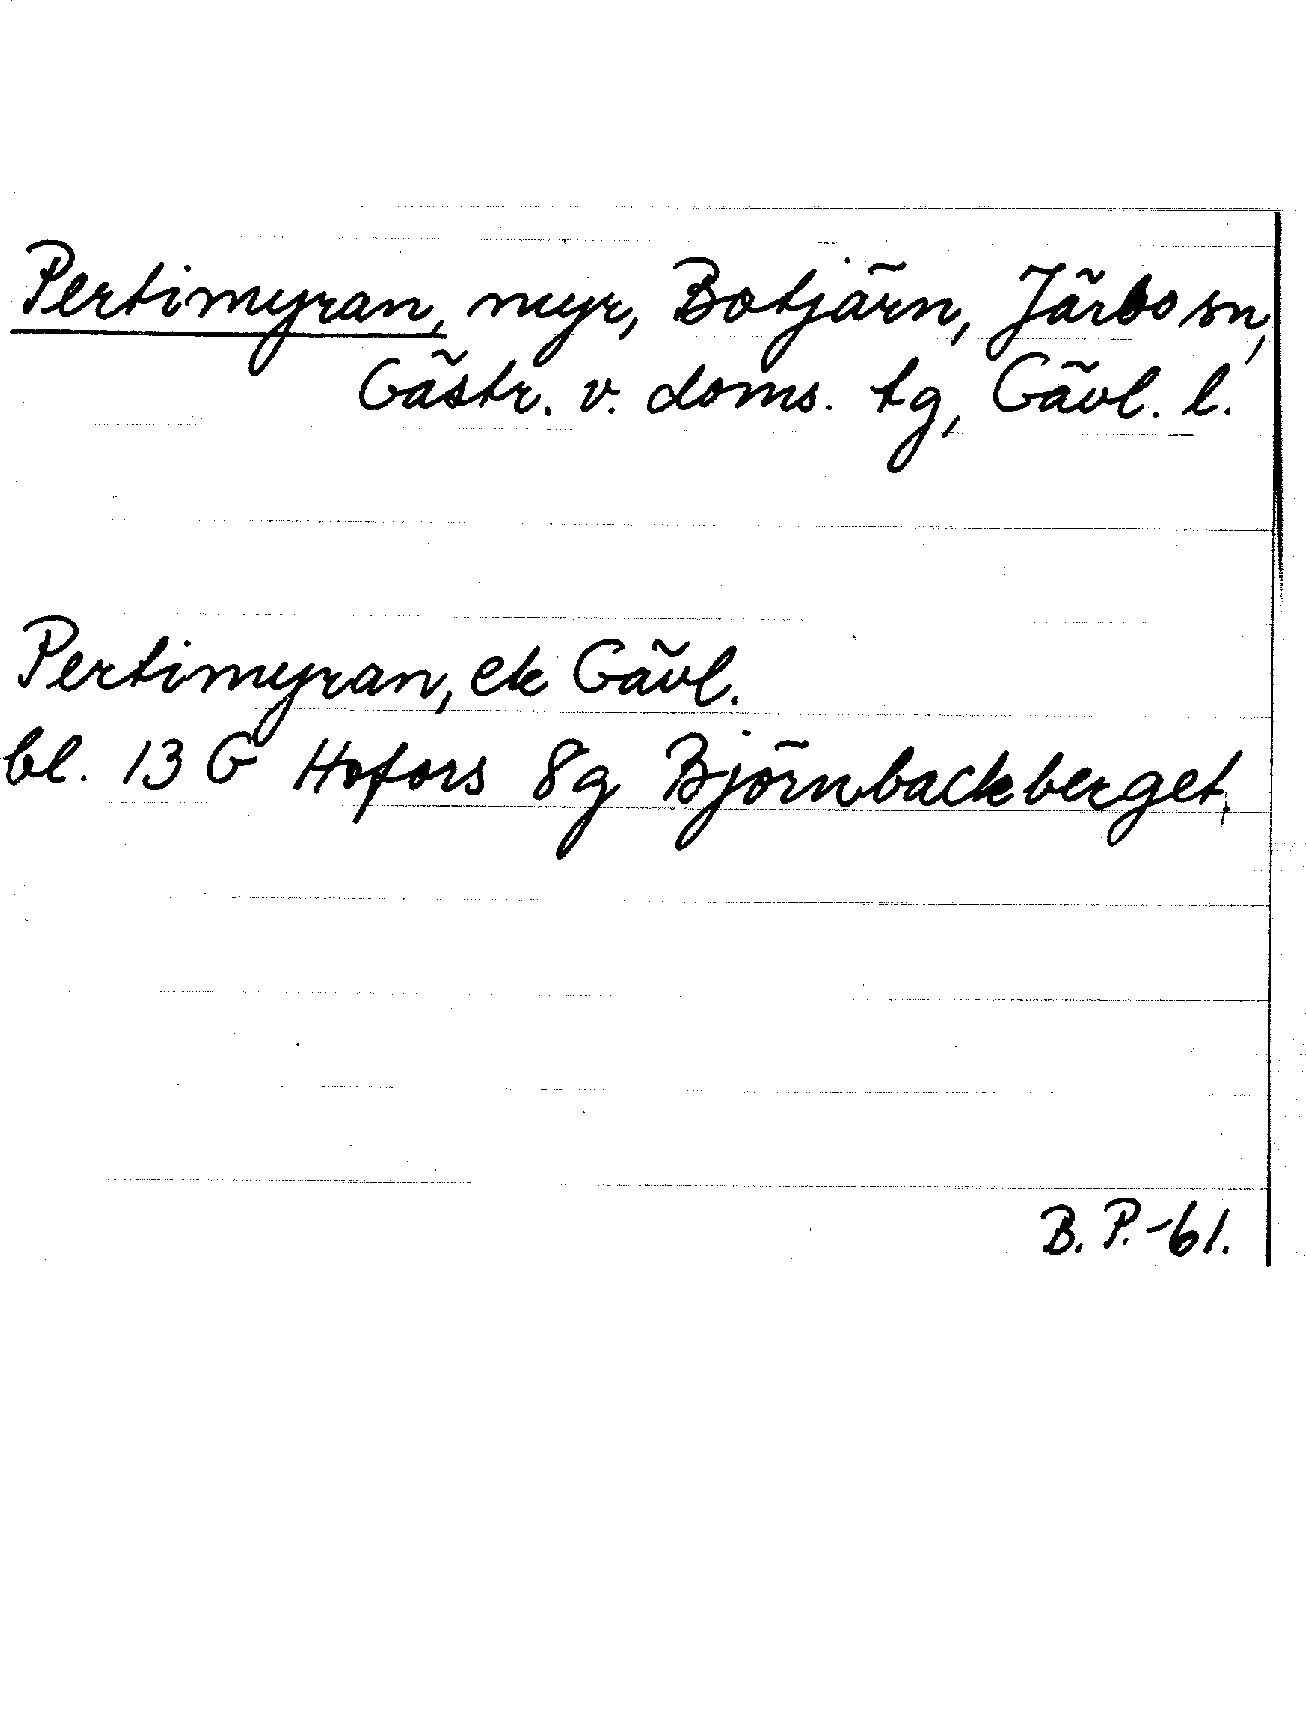 Pertimyran, myr, Botjärn, Järbo sn,
Gästr. v. doms. tg, Gävl. l.
Pertimyran, ek Gävl.
bl. 13 G Hofors 8g Björnbackberget.
B. P.-61.